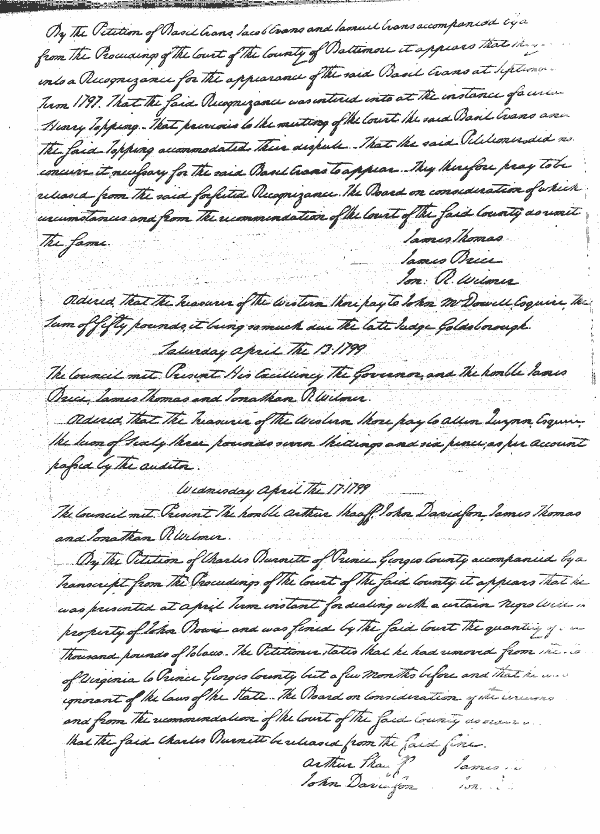 By the Petition of Basil Evans, Jacob Evans and Samuel Evans accompanied by a
from the Proceedings of the Court of the County of Baltimore it appears that they
into a Recognizance for the appearance of the said Basil Evans at September
Term 1797. That the said Recognizance was entered into at the instance of a certain
Henry Topping. That previous to the meeting of the Court the said Basil Evans and
the said Topping accommodated their dispute. That the said Petitioners did no
conceive it necessary for the said Basil Evans to appear. They therefore pray to be
released from the said forfeited Recognizance. The Board on consideration of which
circumstances and from the recommendation of the Court of the said County do remit
the same.
James Thomas
James Brice
Jon: R. Wilmer
Ordered, that the Treasurer of the Western Shore pay to John McDowell Esquire, the
Sum of fifty pounds, it being so much due the late Judge Goldsborough.
Saturday April the 13. 1799
The Council met. Present His Excellency the Governor, and the honble James
Brice, James Thomas and Jonathan R. Wilmer.
Ordered, that the Treasurer of the Western Shore pay to Allen Quynn Esquire,
the Sum of Sixty three pounds seven shillings and six pence, as per account
passed by the auditor.
Wednesday April the 17. 1799
The Council met. Present The honble Arthur Shaaff, John Davidson, James Thomas
and Jonathan R. Wilmer.
By the Petition of Charles Burnett of Prince Georges County accompanied by a
Transcript from the Proceedings of the Court of the said County it appears that he
was presented at April Term instant for dealing with a certain Negro Will
property of John Bowie and was fined by the said Court the quantity of
thousand pounds of Tobacco. The Petitioner states that he had removed from the
of Virginia to Prince Georges County but a few Months before and that he was
ignorant of the laws of the State. The Board on consideration of the
and from the recommendation of the Court of the said County
that the said Charles Burnett be released from the said fine.
Arthur Shaaff James
John Davidson Jon.